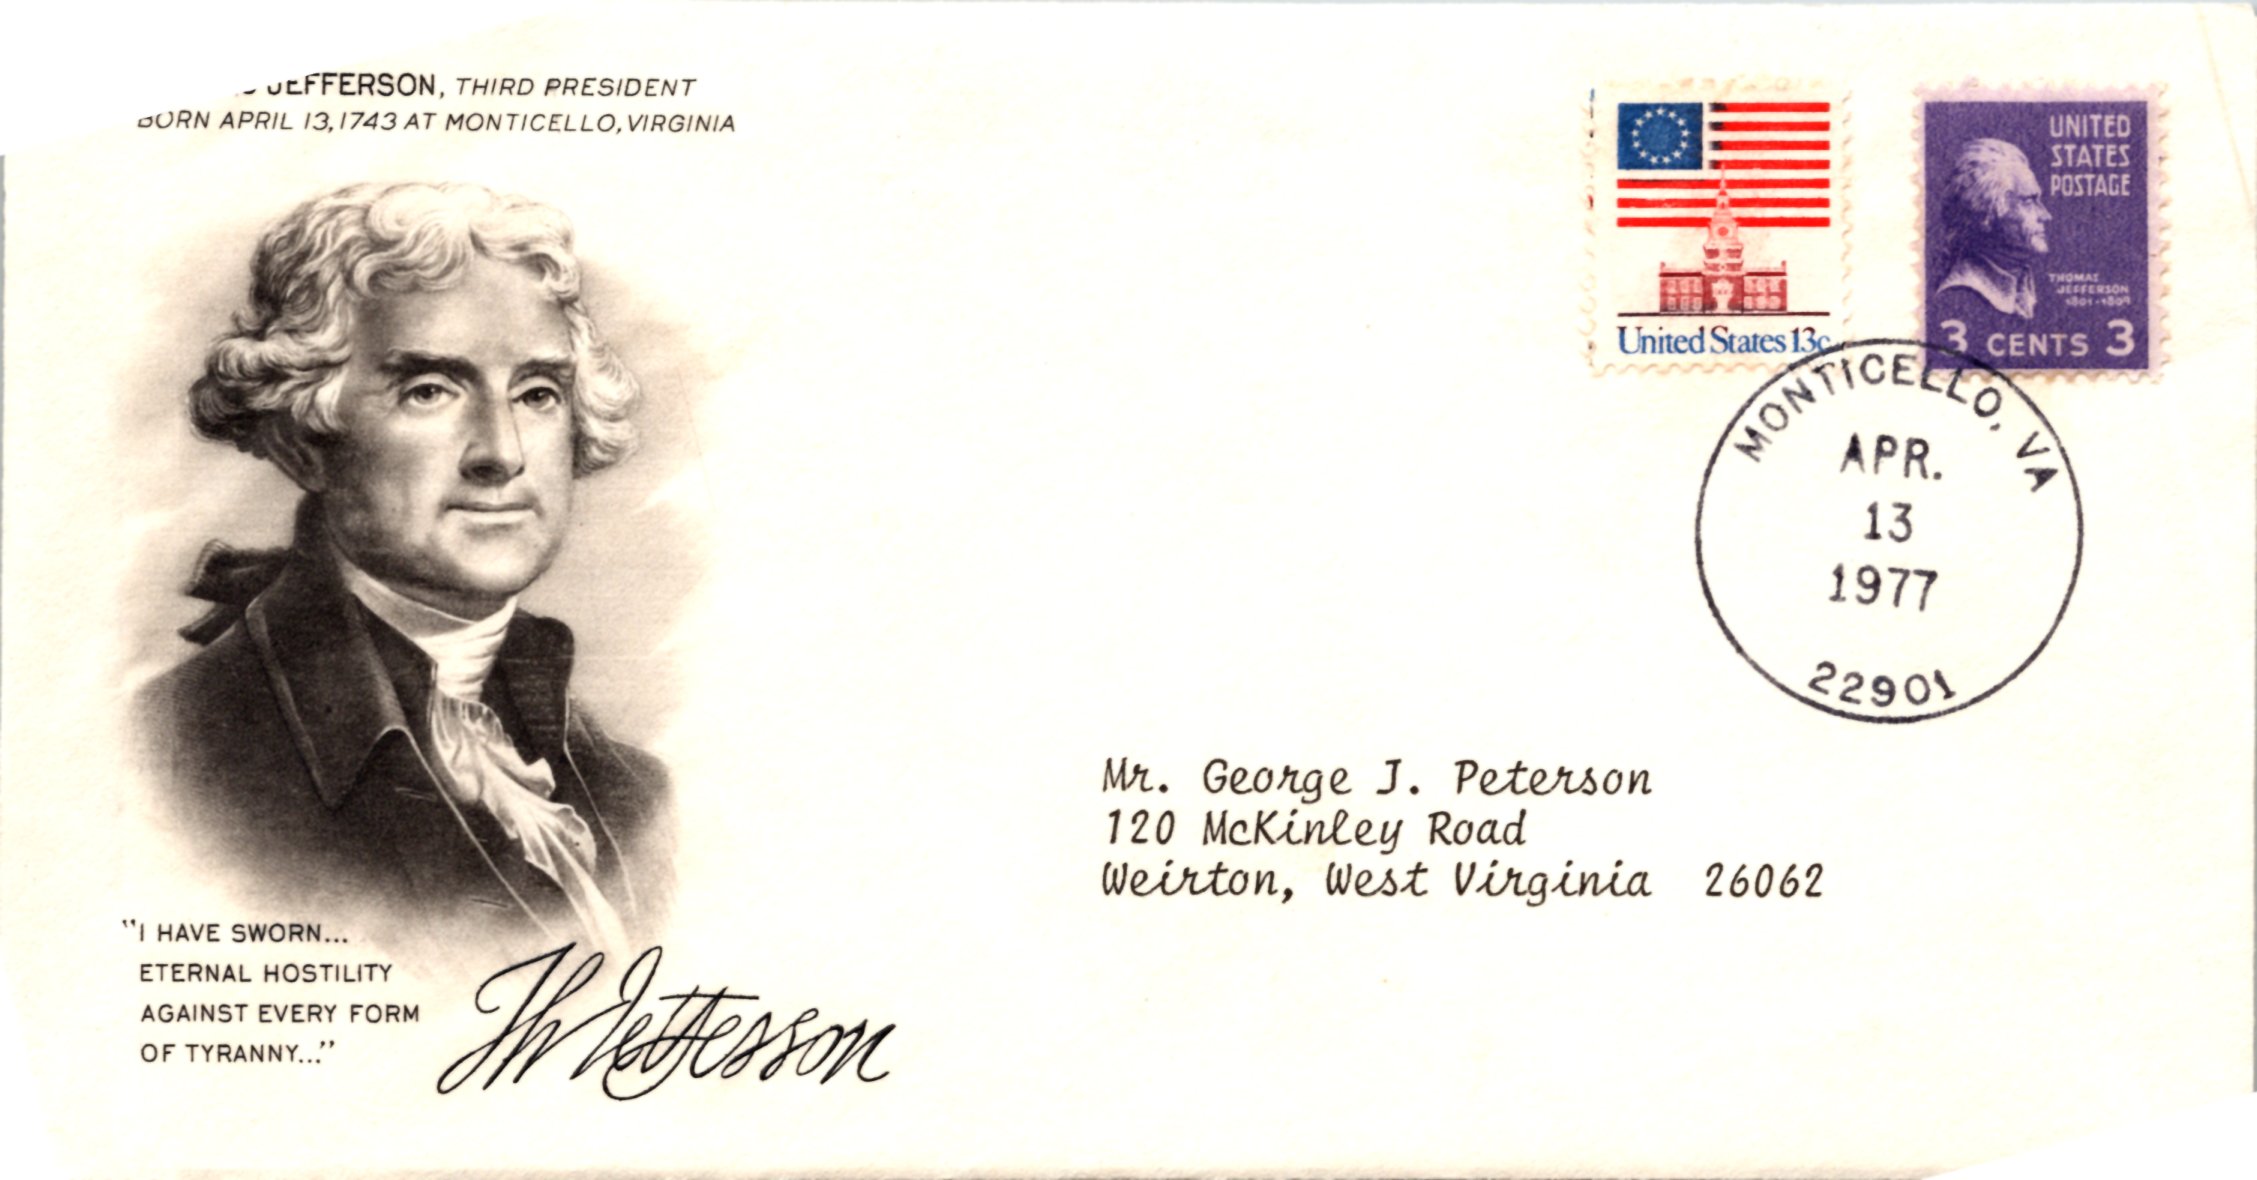 JEFFERSON, THIRD PRESIDENT
BORN APRIL 13, 1743 AT MONTICELLO, VIRGINIA
United States 13c
UNITED
STATES
POSTAGE
THOMAS
JEFFERSON
1801-1809
3 CENTS 3
MONTICELLO, VA
APR.
13
1977
22901
Mr. George J. Peterson
120 McKinley Road
Weirton, West Virginia 26062
"I HAVE SWORN...
ETERNAL HOSTILITY
AGAINST EVERY FORM
OF TYRANNY..."
Th Jefferson